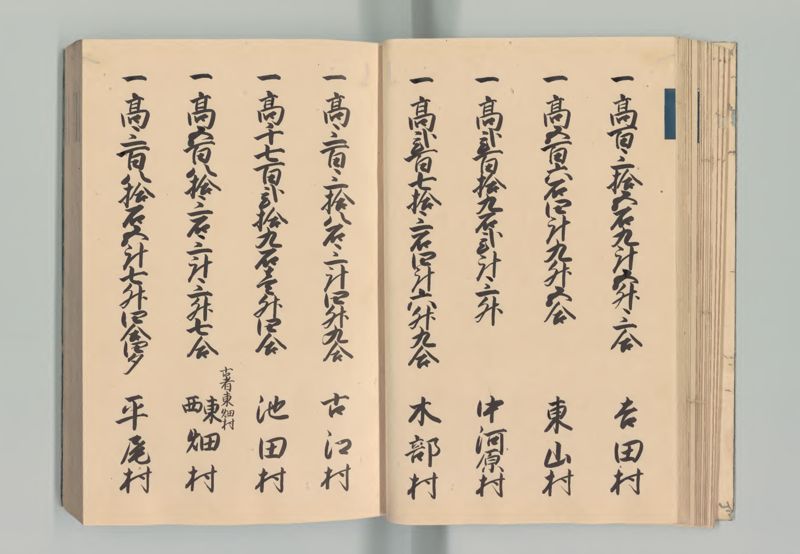 一高百三拾五石九斗五升三合 吉田村
一高五百六石四斗九升五合 東山村
一高弐百拾九石弐斗三升 中河原村
一高弐百七拾三石四斗六升九合 木部村
一高三百三拾八石三斗四升九合 古江村
一高千七百弐拾九石壱升四合 池田村
古者東畑村
一高五百八拾三石三斗三升七合 東西畑村
一高三百八拾石五斗七升四合四夕 平尾村